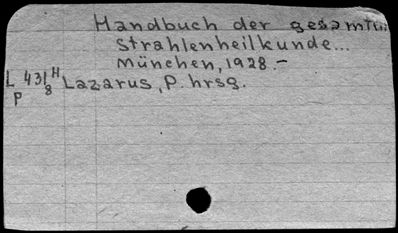 Handbuch der gesamten
Strahlenheilkunde...
München, 1928.-
L 431 H Lazarus, P. hrsg.
P 8